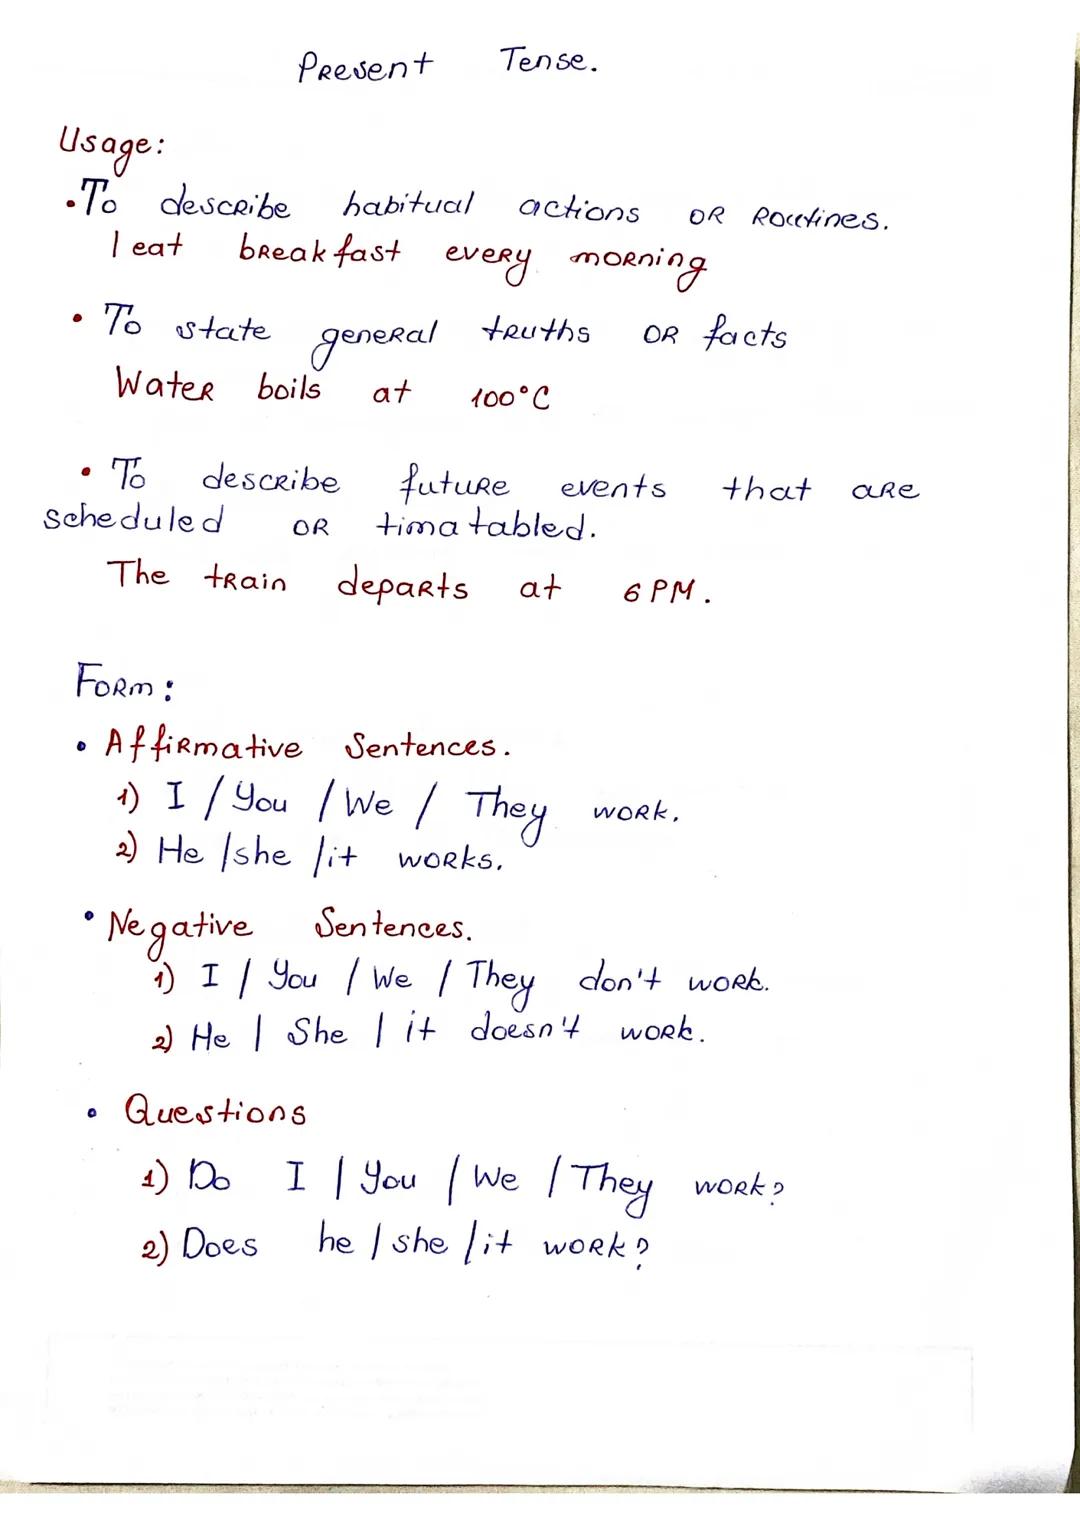 Present Tense.
Usage:
• To describe habitual actions OR Routines.
I eat breakfast every morning
• To state general truths OR facts
Water boils at 100°C
• To describe future events that are
scheduled OR timatabled.
The train departs at 6 PM.
Form:
• Affirmative Sentences.
1) I / You / We / They work.
2) He / she / it works.
• Negative Sentences.
1) I / You / We / They don't work.
2) He / She / it doesn't work.
• Questions
1) Do I / You / We / They work?
2) Does he / she / it work?